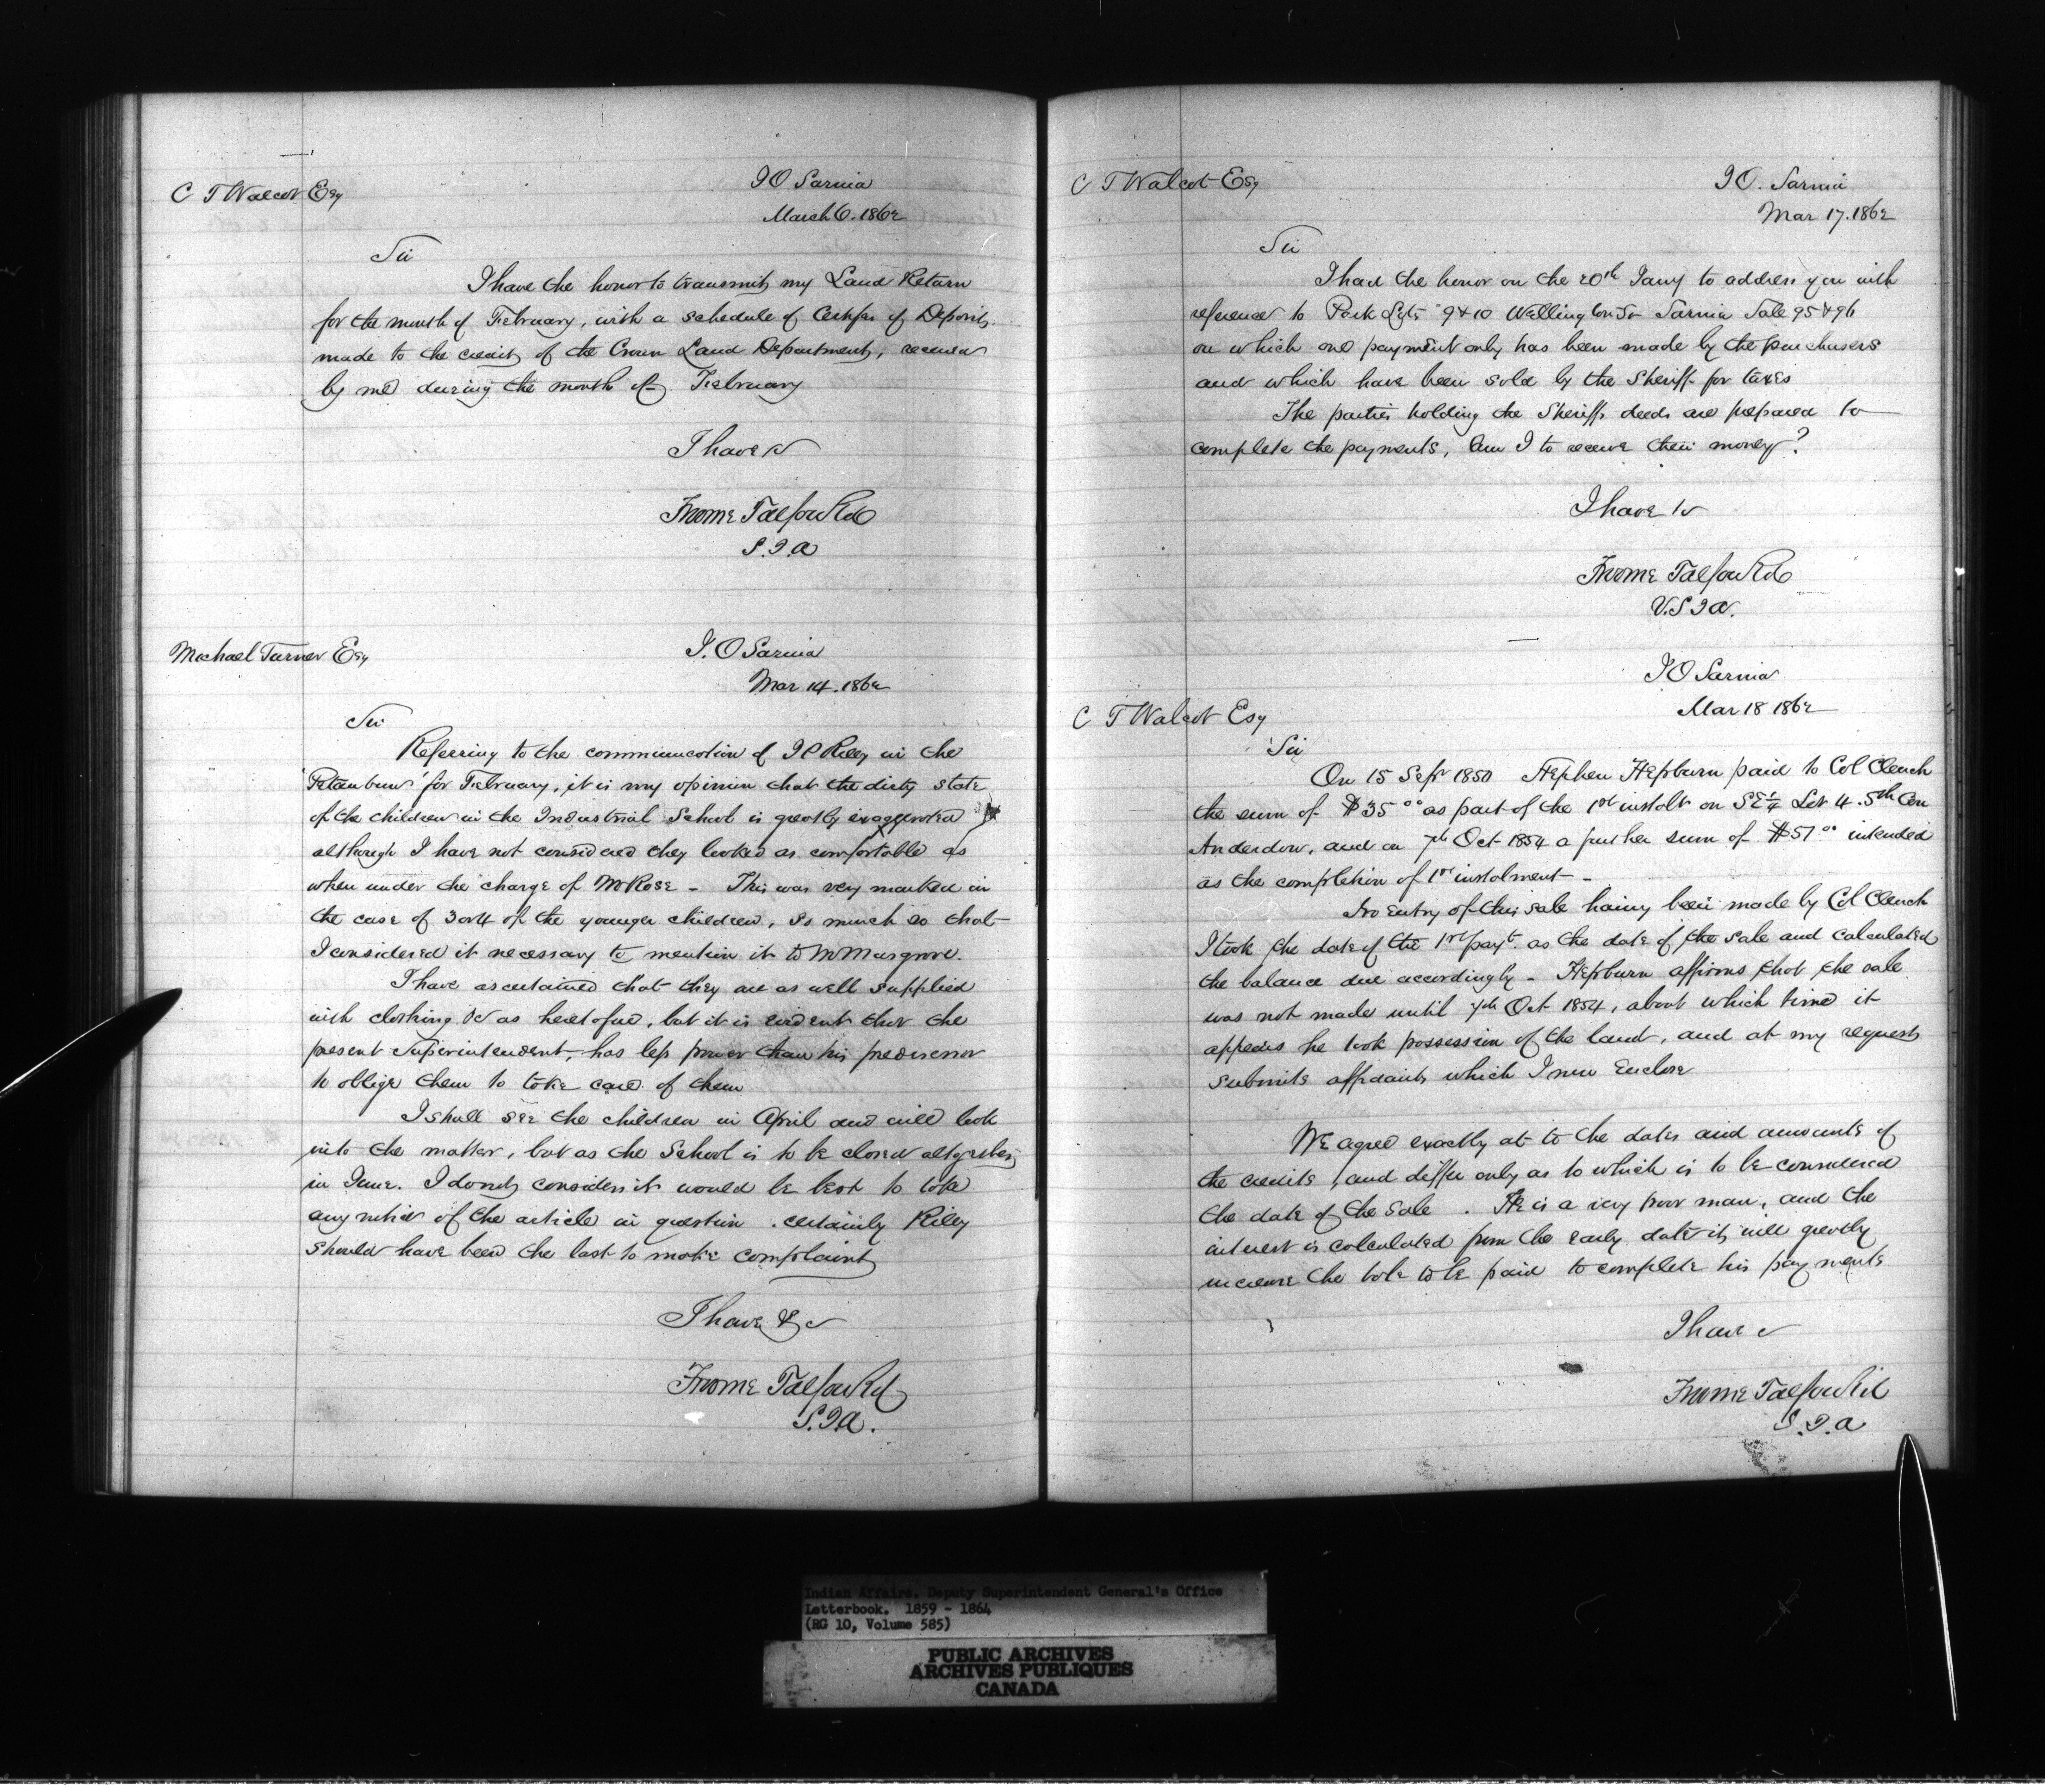 C T Walcot Esq
I O Sarnia
March 6. 1862
Sir
I have the honor to transmit my Land Return
for the month of February, with a schedule of Certifs of Deposits
made to the credit of the Crown Land Department, received
by me during the month of February
I have &c
Froome Talfourd
S.I.A
Michael Turner Esq
I. O Sarnia
Mar 14. 1862
Sir
Referring to the communication of I P Riley in the
'Petaubun' for February, it is my opinion that the dirty state
of the children in the Industrial School is greatly exaggerated
although I have not considered they looked as comfortable as
when under the charge of Mr Rose - This was very marked in
the case of 3 or 4 of the younger children, so much so that
I considered it necessary to mention it to Mr Musgrove.
I have ascertained that they are as well supplied
with clothing &c as heretofore, but it is evident that the
present Superintendent, has less power than his predecessor
to oblige them to take care of them
I shall see the children in April and will look
into the matter, but as the School is to be closed altogether
in June. I do not consider it would be best to take
any notice of the article in question. certainly Riley
should have been the last to make complaint
I have &c
Froome Talfourd
S.I.A.
C T Walcot Esq
I O. Sarnia
Mar 17. 1862
Sir
I had the honor on the 20th Jany to address you with
reference to Park Lots 9 & 10 Wellington St Sarnia Sale 95 & 96
on which one payment only has been made by the purchasers
and which have been sold by the Sheriff for taxes
The parties holding the Sheriffs deeds are prepared to
complete the payments, Am I to receive their money?
I have &c
Froome Talfourd
V.S I A.
I O Sarnia
Mar 18 1862
C T Walcot Esq
Sir
On 15 Sepr 1850 Stephen Hepburn paid to Col Clench
the sum of $35 00 as part of the 1st instalt on SE 1/4 Lot 4. 5th Con
Anderdon, and on 7th Oct 1854 a further sum of $51 00 intended
as the completion of 1st instalment -
No Entry of this sale having been made by Col Clench
I took the date of the 1st payt. as the date of the sale and calculated
the balance due accordingly - Hepburn affirms that the sale
was not made until 7th Oct 1854, about which time it
appears he took possession of the land, and at my request
submits affidavits which I now Enclose
We agree exactly as to the dates and amounts of
the credits, and differ only as to which is to be considered
the date of the Sale. He is a very poor man, and the
interest is calculated from the early date it will greatly
increase the bole to be paid to complete his payments
I have &c
Froome Talfourd
S.I.A
Indian Affairs. Deputy Superintendent General's Office
Letterbook. 1859 - 1864
(RG 10, Volume 585)
PUBLIC ARCHIVES
ARCHIVES PUBLIQUES
CANADA